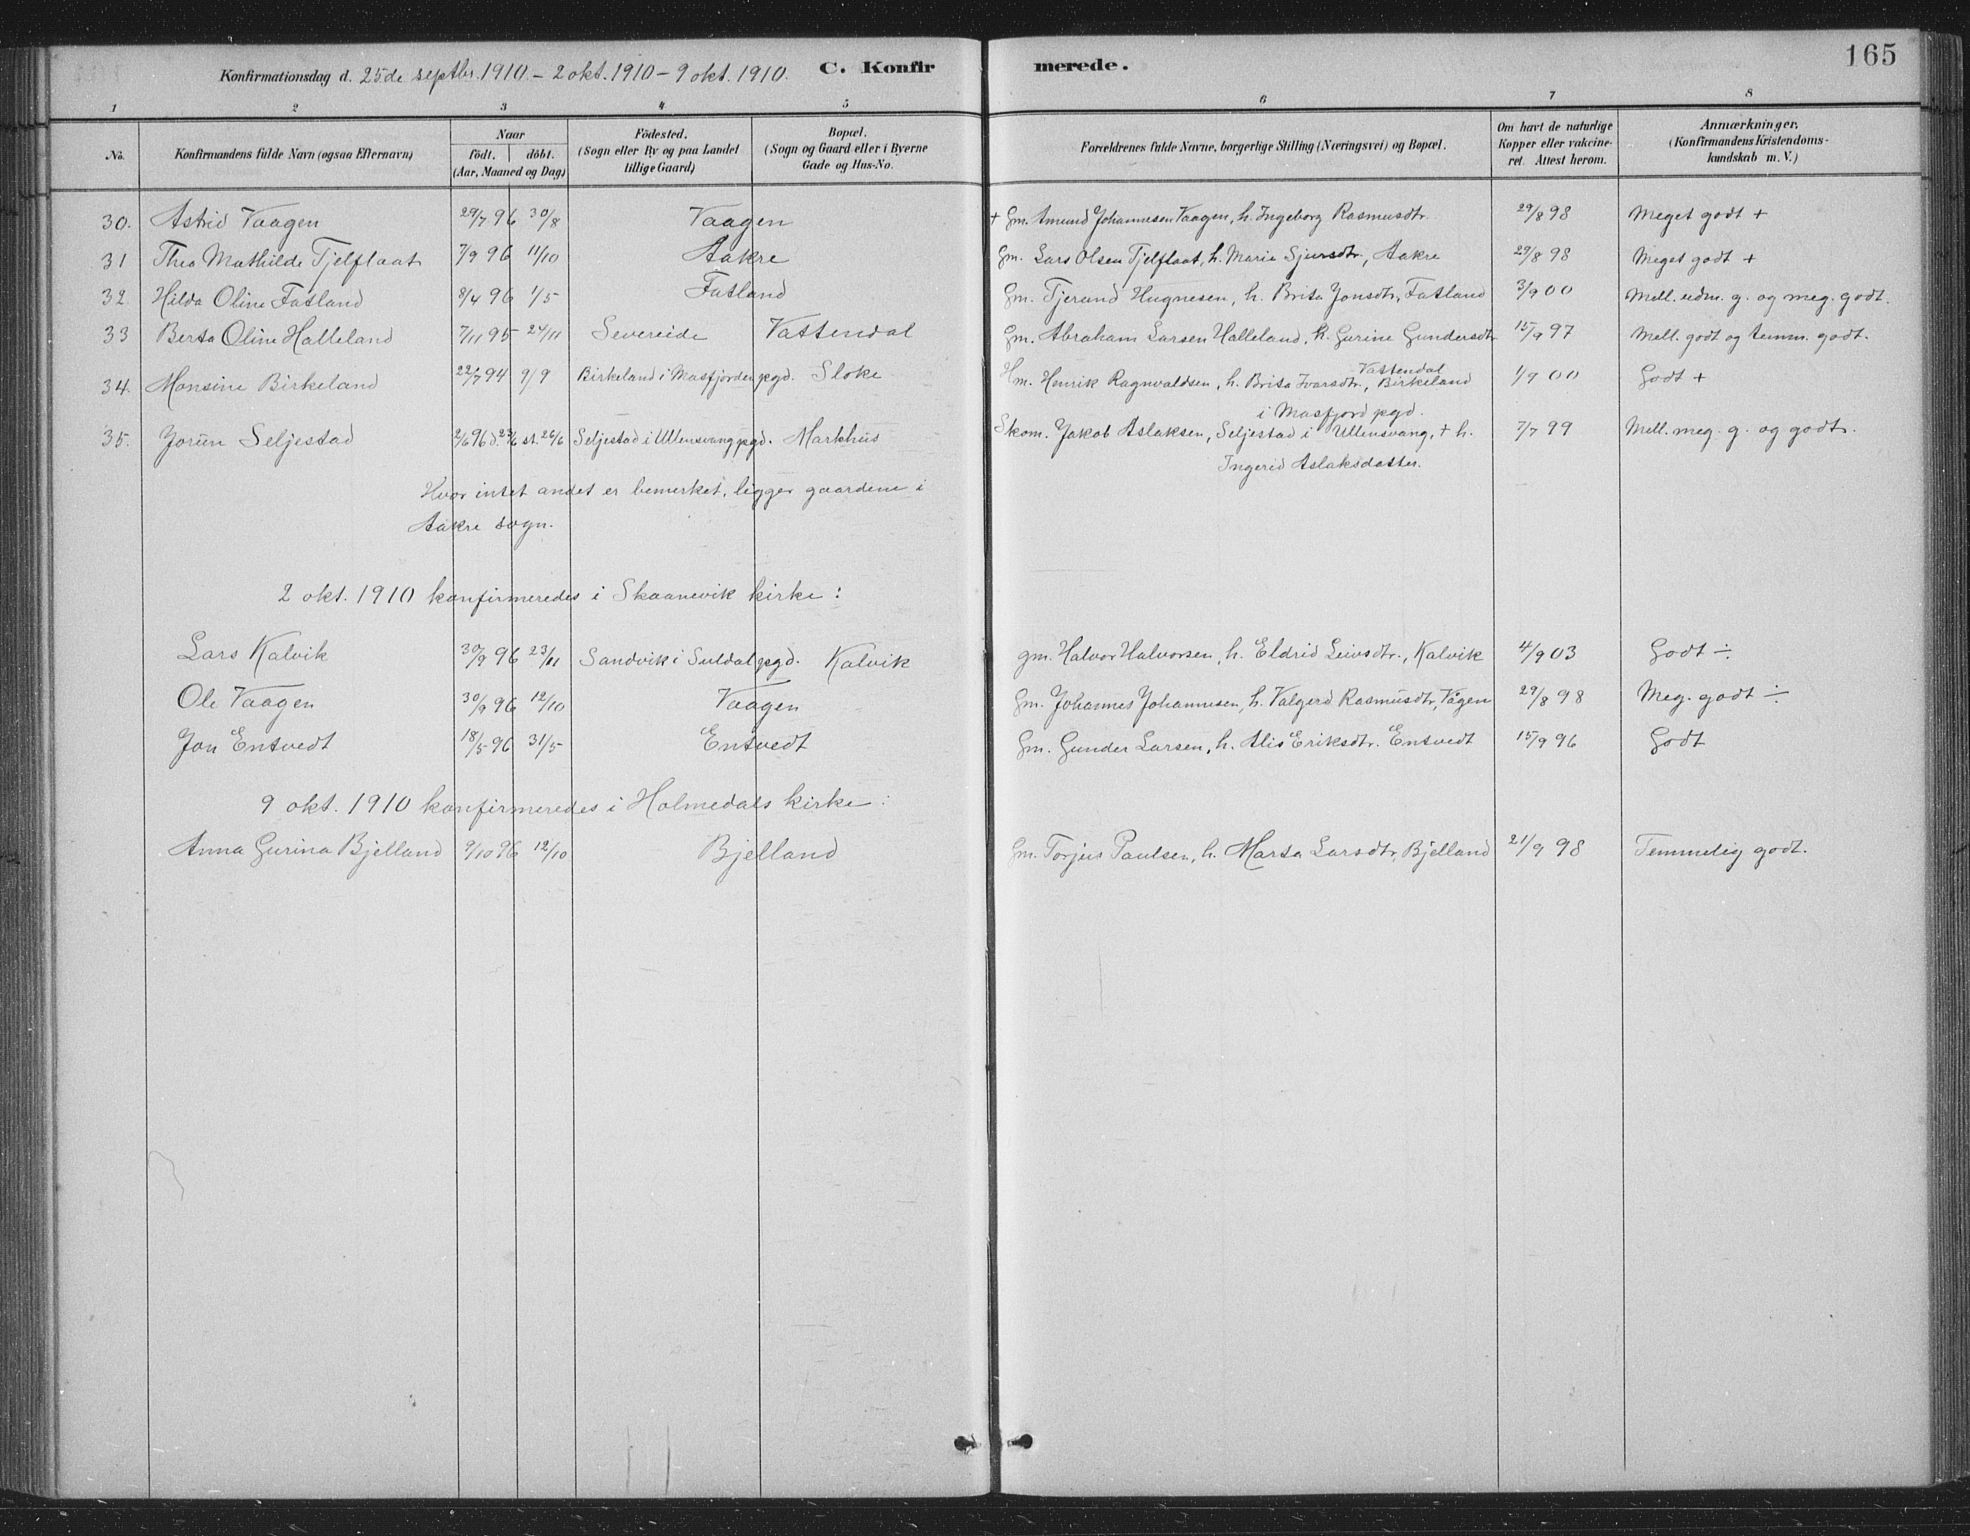 165
Konfirmationsdag d. 25de septbr. 1910 - 2 okt. 1910 - 9 okt. 1910. C. Konfirmerede.
1 2 3 4 5 6 7 8
No. Konfirmandens fulde Navn (ogsaa Efternavn) Naar födt. döbt. (Aar, Maaned og Dag) Födested. (Sogn eller By og paa Landet tillige Gaard) Bopæl. (Sogn og Gaard eller i Byerne Gade og Hus-No. Forældrenes fulde Navne, borgerlige Stilling (Næringsvei) og Bopæl. Om havt de naturlige Kopper eller vakcineret. Attest herom. Anmærkninger. (Konfirmandens Kristendomskundskab m. V.)
30. Astrid Vaagen 29/7 96 30/8 Vaagen + Gm. Amund Johannesen Vaagen, h. Ingeborg Rasmusdtr. 29/8 98 Meget godt +
31 Thea Mathilde Tjelflaat 7/9 96 11/10 Aakre Gm. Lars Olsen Tjelflaat, h. Marie Sjursdtr, Aakre 29/8 98 Meget godt +
32. Hilda Oline Fatland 8/4 96 1/5 Fatland Gm. Tjerand Hugnesen, h. Brita Jonsdtr, Fatland 3/9 00 Mell. udm. g. og meg. godt.
33 Berta Oline Halleland 7/11 95 24/11 Severeide Vattendal Gm. Abraham Larsen Halleland, h. Gurine Gundersdtr 15/9 97 Mell. godt og temm. godt.
34. Monsine Birkeland 22/7 94 9/9 Birkeland i Masfjorden pgd. Sloke Hm. Henrik Ragnvaldsen, h. Brita Ivarsdtr., Vattendal Birkeland 1/9 00 Godt +
i Masfjord pgd.
35. Jorun Seljestad 2/6 96 d. 23/6 st. 26/6 Seljestad i Ullensvang pgd. Markhus Skom. Jakob Aslaksen, Seljestad i Ullensvang, + h. 7/7 99 Mell. meg. g. og godt.
Ingerid Aslaksdatter.
Hvor intet andet er bemerket, ligger gaardene i
Aakre sogn.
2 okt. 1910 konfirmeredes i Skaanevik kirke:
Lars Kalvik 30/9 96 23/11 Sandvik i Suldal pgd. Kalvik gm. Halvor Halvorsen, h. Eldrid Leivsdtr., Kalvik 4/9 03 Godt ÷
Ole Vaagen 30/9 96 12/10 Vaagen Gm. Johannes Johannesen, h. Valgerd Rasmusdtr, Vågen 29/8 98 Meg. godt ÷
Jon Entvedt 18/5 96 31/5 Entvedt Gm. Gunder Larsen, h. Alis Eriksdtr. Entvedt 15/9 96 Godt
9 okt. 1910 konfirmeredes i Holmedals kirke:
Anna Gurina Bjelland 9/10 96 12/10 Bjelland Gm. Torjus Paulsen, h. Marta Larsdtr, Bjelland 21/9 98 Temmelig godt.